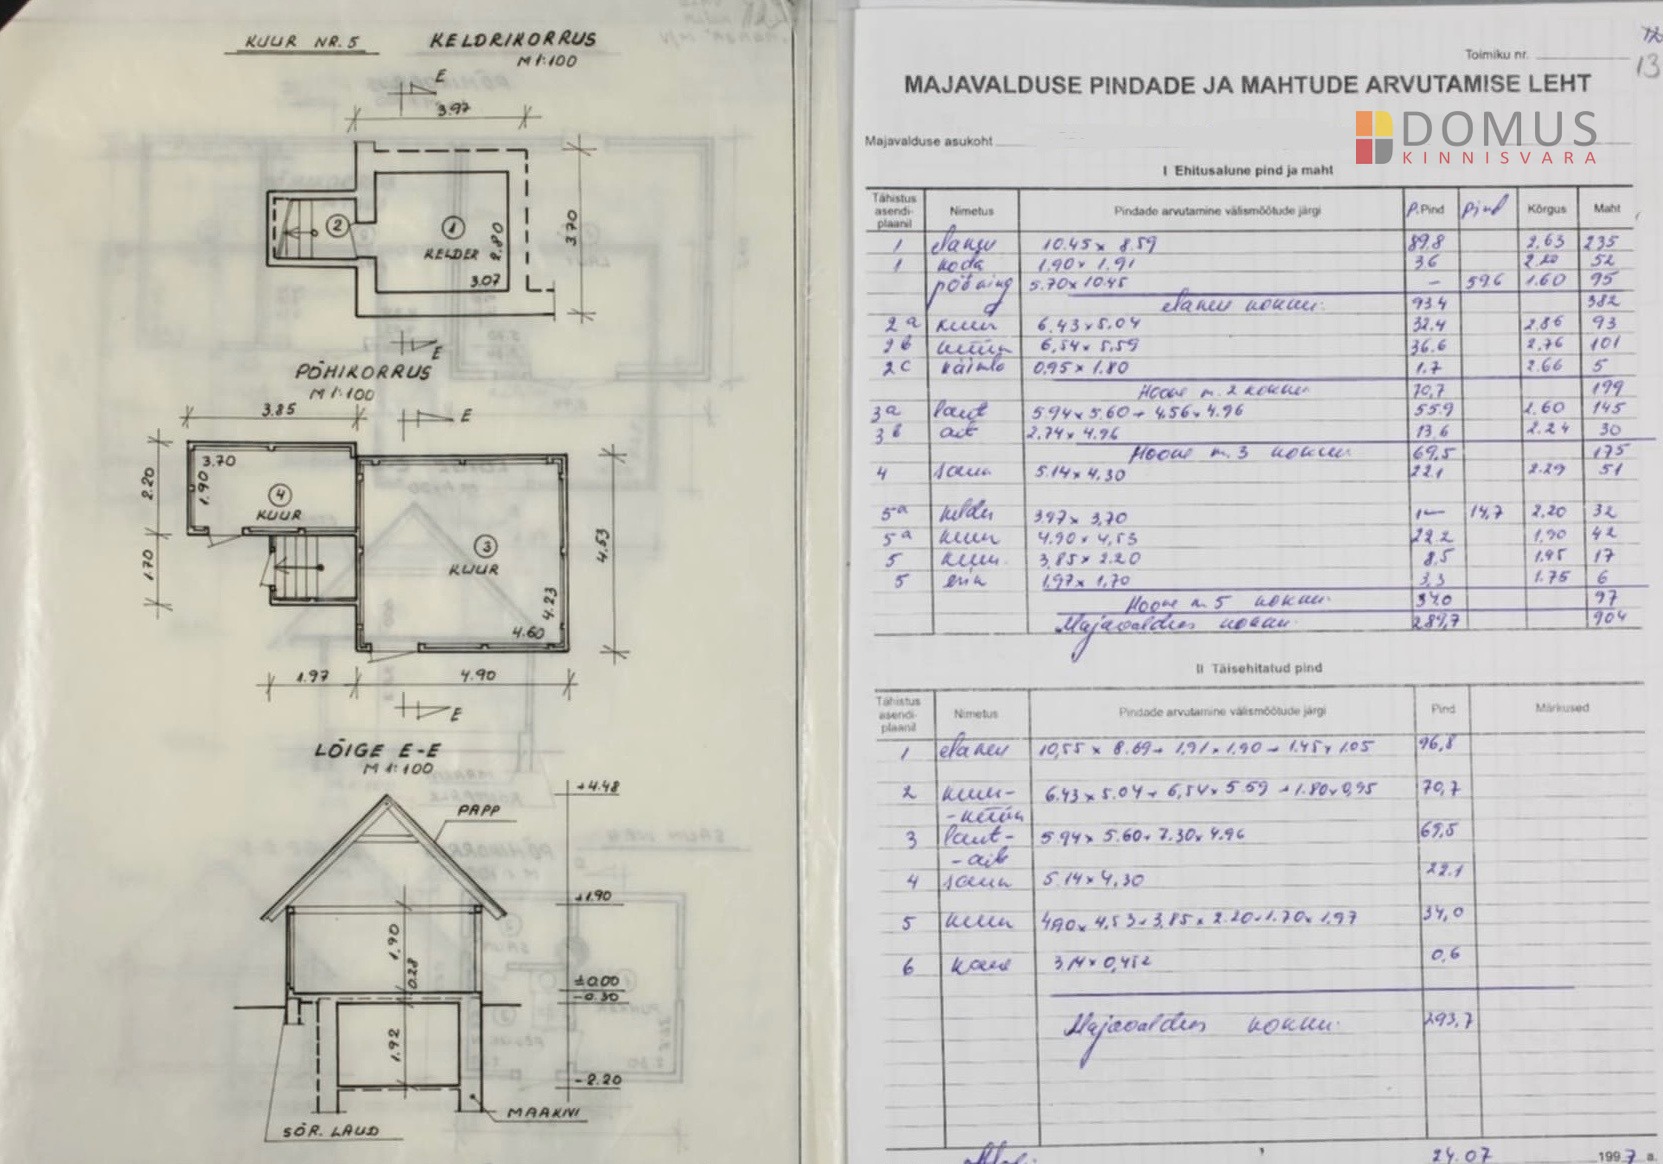 KUUR NR. 5
KELDRIKORRUS
M 1:100
E
3.97
2
1
KELDER
2.80
3.07
3.70
E
PÕHIKORRUS
M 1:100
3.85
E
3.70
1.90
2.20
4
KUUR
1.70
3
KUUR
4.53
4.23
4.60
1.97
4.90
E
LÕIGE E-E
M 1:100
+4.48
PAPP
+1.90
1.90
0.28
±0.00
-0.30
1.92
-2.20
MAAKIVI
SÕR. LAUD
Toimiku nr.
13
MAJAVALDUSE PINDADE JA MAHTUDE ARVUTAMISE LEHT
DOMUS
KINNISVARA
Majavalduse asukoht
I Ehitusalune pind ja maht
Tähistus asendi-plaanil Nimetus Pindade arvutamine välismõõtude järgi p.Pind pind Kõrgus Maht
1 elamu 10.45 x 8.59 89.8 2.63 235
1 koda 1.90 x 1.91 3.6 2.20 52
pööning 5.70 x 10.45 — 59.6 1.60 95
elamu kokku: 93.4 382
2a kuur 6.43 x 5.04 32.4 2.86 93
2b küün 6.54 x 5.59 36.6 2.76 101
2c käimla 0.95 x 1.80 1.7 2.66 5
Hoone nr. 2 kokku 70,7 199
3a laut 5.94 x 5.60 + 4.56 x 4.96 55.9 2.60 145
3b ait 2.74 x 4.96 13.6 2.24 30
Hoone nr. 3 kokku 69,5 175
4 saun 5.14 x 4,30 22.1 2.29 51
5a kelder 3.97 x 3,70 — 14,7 2,20 32
5a kuur 4.90 x 4,53 22.2 1,90 42
5 kuur 3,85 x 2.20 8,5 1.95 17
5 esik 1,97 x 1,70 3,3 1.75 6
Hoone nr 5 kokku 34.0 97
Majavaldus kokku: 289,7 904
II Täisehitatud pind
Tähistus asendi-plaanil Nimetus Pindade arvutamine välismõõtude järgi Pind Märkused
1 elamu 10,55 x 8.69 + 1,91 x 1,90 + 1.45 x 1.05 96,8
2 kuur- 6.43 x 5.04 + 6,54 x 5.59 + 1.80 x 0,95 70,7
-küün
3 laut- 5.94 x 5.60 + 7.30 x 4.96 69,5
-ait
4 saun 5.14 x 4,30 22.1
5 kuur 4.90 x 4,53 + 3,85 x 2.20 + 1.70 x 1,97 34,0
6 kaev 3.14 x 0,45² 0,6
Majavaldus kokku: 293,7
24.07 1997 a.